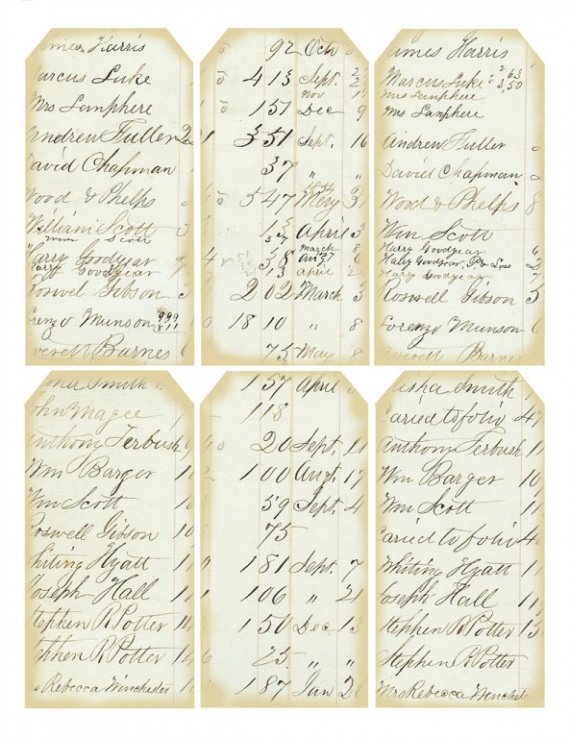 James Harris
Marcus Luke
Mrs Lanphere
Andrew Fuller 2
David Chapman
Wood & Phelps
William Scott
Harry Goodyear
Harry Goodyear
Roswel Gibson
Lorenzo Munson 999
811
Everett Barnes
92 Octo
413 Sept. 2
Nov 1
151 Dec 9
1 351 Sept. 16
37 " "
547 May 3
13 April 3
March 8
38
13 April 2
202 March 3
18 10 " 8
75 May 8
James Harris
Marcus Luke
3,50
Mrs Lanphere
Mrs Lanphere
Andrew Fuller
David Chapman
Wood & Phelps 8
Wm Scott
Harry Goodyear
Harry Goodyear
Harry Goodyear
Roswell Gibson 3
Lorenzo Munson
Everett Barnes
Smith
John Magee
Anthony Terbush
Wm Barger
Wm Scott
Roswell Gibson
Whiting Hyatt
Joseph Hall
Stephen R Potter
Stephen R Potter
Rebecca Winchester
157 April
118
20 Sept. 11
100 Augt. 17
59 Sept. 4
75
181 Sept. 7
106 " 21
150 Dec 13
25 " "
187 Jan 2
Elisha Smith
Caried to folio 4
Anthony Terbush
Wm Barger 10
Wm Scott 11
Caried to folio 4
Whiting Hyatt 1
Joseph Hall 11
Stephen R Potter 15
Stephen R Potter
Mrs Rebecca Winchest